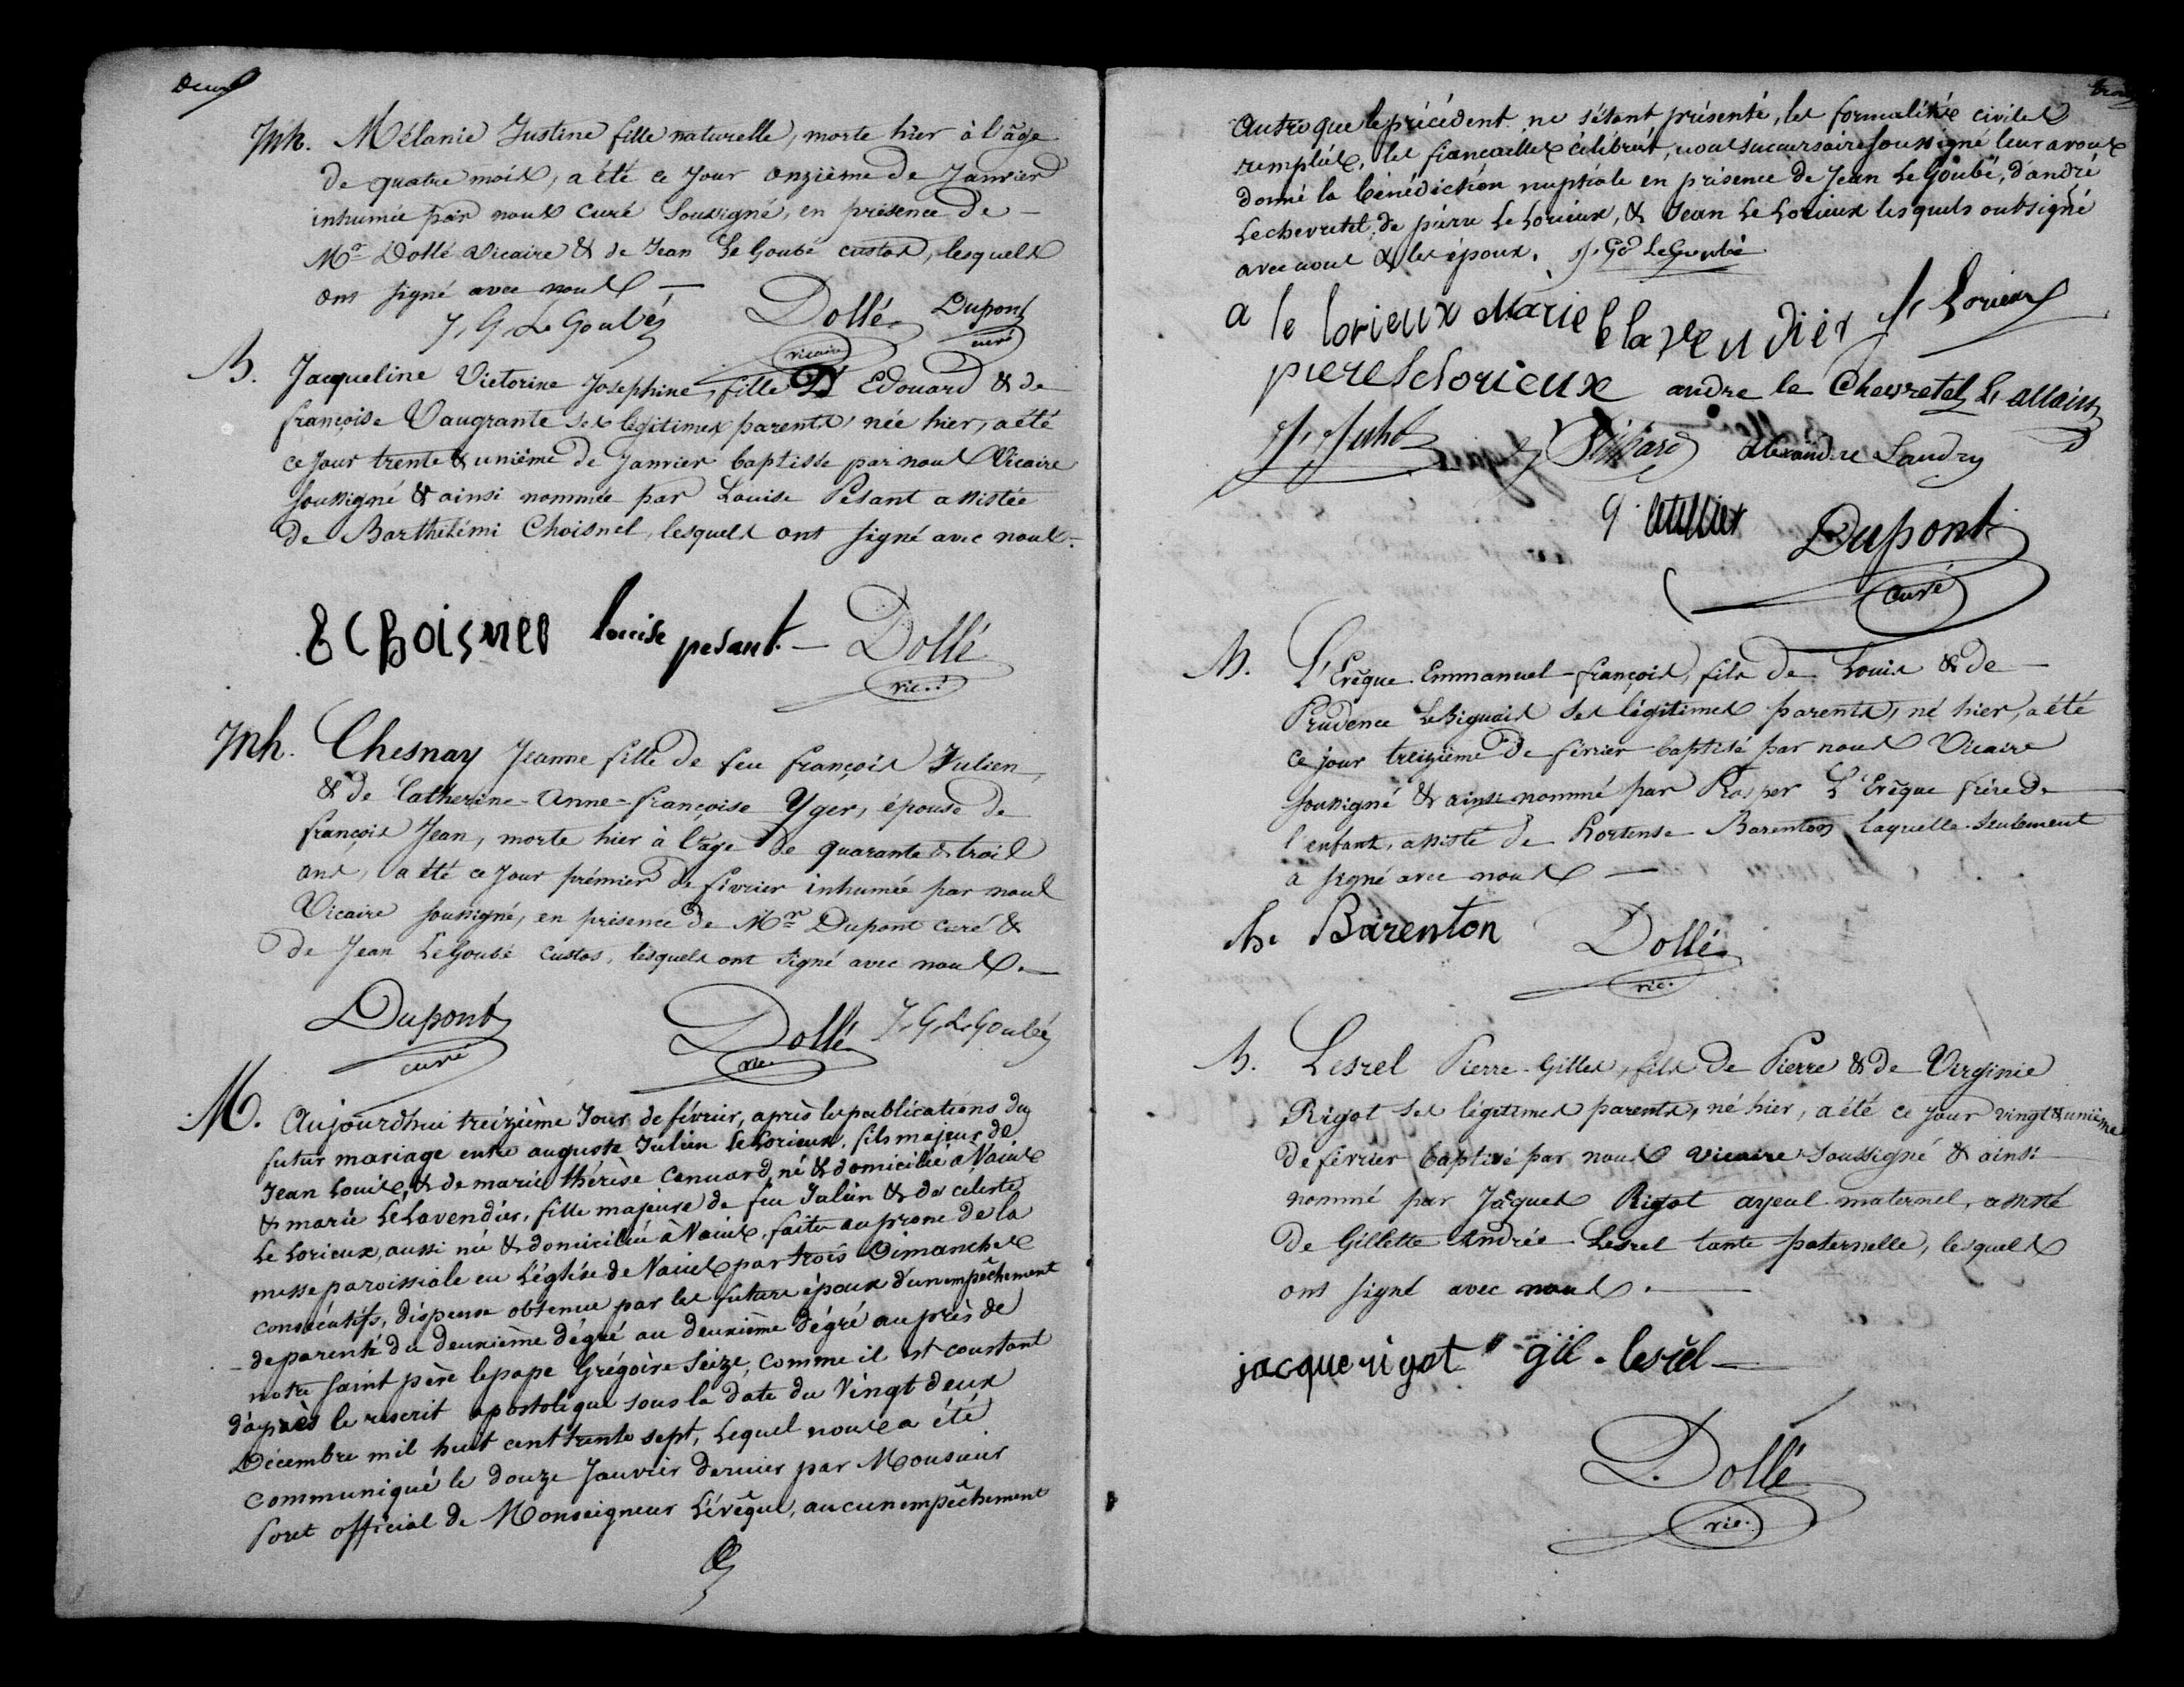 deux
Inh. Mélanie Justine fille naturelle, morte hier à l'âge
de quatre mois, a été ce jour onzième de Janvier
inhumée par nous curé soussigné, en présence de —
Mr Dollé Vicaire & de Jean Le Goubé custos, lesquels
ont signé avec nous —
J. G. Le Goubéy Dollé Dupont
vicaire curé
B. Jacqueline Victorine Josephine, fille D' Edouard & de
françoise Vaugrante ses légitimes parents, née hier, a été
ce jour trente & unième de Janvier baptisée par nous Vicaire
soussigné & ainsi nommée par Louise Pesant assistée
de Barthélémi Choisnel, lesquels ont signé avec nous.
B Choisnel louise pesant. — Dollé
vic.
Inh. Chesnay Jeanne fille de feu françois Julien,
& de Catherine-Anne-françoise Yger, épouse de
françois Jean, morte hier à l'âge de quarante & trois
ans, a été ce jour prémier de février inhumée par nous
Vicaire soussigné, en présence de Mr Dupont curé &
de Jean LeGoubé custos, lesquels ont signé avec nous. —
Dupont Dollé J. G. Le Goubéy
curé vic.
M. Aujourdhui treizième Jour de février, après les publications du
futur mariage entre auguste Julien LeLorieux, fils majeur de
Jean Louis, & de marie thérèse Canuard, né & domicilié à Vains
& marie LeLavendier, fille majeure de feu Julien & de celeste
Le Lorieux, aussi née & domiciliée à Vains, faites au prone de la
messe paroissiale en L'église de Vains par trois Dimanches
consécutifs, dispense obtenue par les futurs époux d'un empêchement
de parenté du deuxième dégré au deuxième dégré auprès de
notre saint père le pape Grégoire seize, comme il est constant
d'après le rescrit apostolique sous la date du Vingt deux
Décembre mil huit cent trente sept, Lequel nous a été
communiqué le douze Janvier dernier par Monsieur
foret official de Monseigneur L'évêque, aucun empêchement
trois
autre que le précédent ne s'étant présenté, les formalités civiles
remplies, les fiançailles célébrés, nous succursaire soussigné leur avons
donné la bénédiction nuptiale en présence de Jean LeGoubé, d'andré
Lechevretel, de pierre Le Lorieux, & Jean Le Lorieux lesquels ont signé
avec nous & les époux. J. G. LeGoubé
a le lorieux Marie le laVendier J. Lorieux
piere Lelorieux andre le Chevretel L. allain
alexandre Landry
letellier Dupont
curé
B. L'Evêque Emmanuel-françois, fils de Louis & de —
Prudence LeBiguais ses légitimes parents, né hier, a été
ce jour treizième de février baptisé par nous Vicaire
soussigné & ainsi nommé par Prosper L'Evêque frère de
l'enfant, assisté de Hortense Barenton, laquelle seulement
a signé avec nous —
h. Barenton Dollé
vic.
B. Lesrel Pierre-Gilles, fils de Pierre & de Virginie
Rigot ses légitimes parents, né hier, a été ce jour vingt & unième
de février baptisé par nous vicaire soussigné & ainsi
nommé par Jaques Rigot ayeul maternel, assisté
de Gillette Andrée Lesrel tante paternelle, lesquels
ont signé avec nous. —
jacque rigot gil. lesrel —
Dollé
vic.